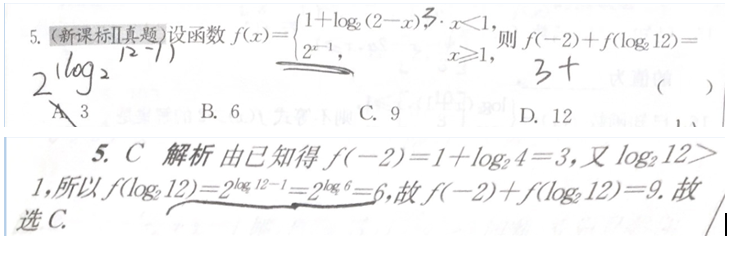 5. (新课标Ⅱ真题)设函数 f(x)={1+log₂(2-x), x<1, 2^{x-1}, x≥1, 则 f(-2)+f(log₂12)=
3
2^{(log₂12-1)}
3+
( )
A. 3 B. 6 C. 9 D. 12
5. C 解析 由已知得 f(-2)=1+log₂4=3,又 log₂12>
1,所以 f(log₂12)=2^{log₂12-1}=2^{log₂6}=6,故 f(-2)+f(log₂12)=9. 故
选 C.